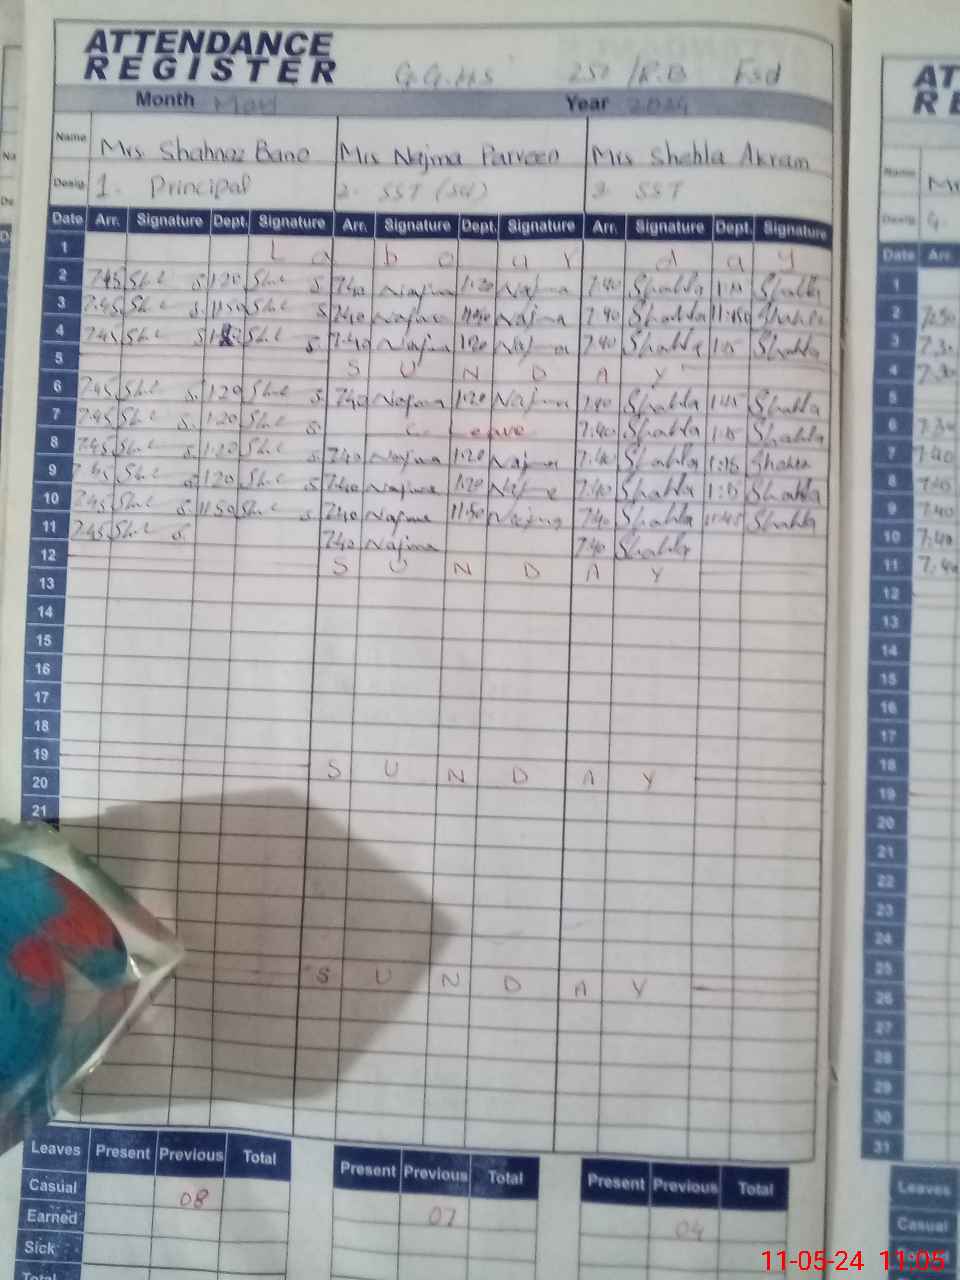 ATTENDANCE
REGISTER G.G.H.S 257/R.B Fsd
Month May Year 2024
Name Mrs. Shahnaz Bano Mrs Najma Parveen Mrs Shahla Akram
Desig. 1. Principal 2. SST (Sci) 3. SST
Date Arr. Signature Dept. Signature Arr. Signature Dept. Signature Arr. Signature Dept. Signature
1 L a b o u r d a y
2 7.45 1:20 7:40 Najma 1:20 Najma 7:40 Shahla Shahla
3 7.45 11:50 7:40 Najma 11:50 Najma 7:40 Shahla Shahla
4 7.45 7:40 Najma 1:20 Najma 7:40 Shahla Shahla
5 S U N D A Y
6 7.45 1:20 7:40 Najma 1:20 Najma 7:40 Shahla Shahla
7 7.45 1:20 C. Leave 7:40 Shahla Shahla
8 7.45 1:20 7:40 Najma 1:20 Najma 7:40 Shahla 1:15 Shahla
9 7.45 1:20 7:40 Najma 1:20 7:40 Shahla Shahla
10 7.45 11:50 7:40 Najma 11:50 Najma 7:40 Shahla 11:45 Shahla
11 7.45 7:40 Najma 7:40 Shahla
12 S U N D A Y
13
14
15
16
17
18
19 S U N D A Y
20
21
S U N D A Y
Leaves Present Previous Total Present Previous Total Present Previous Total
Casual 08 07 04
Earned
Sick
Total
AT
RE
Name
Desig.
Date Arr.
1
2 7:50
3 7.30
4 7.30
5
6 7.30
7 7:40
8 7:40
9 7:40
10 7:40
11 7:40
12
13
14
15
16
17
18
19
20
21
22
23
24
25
26
27
28
29
30
31
Leaves
Casual
11-05-24 11:05